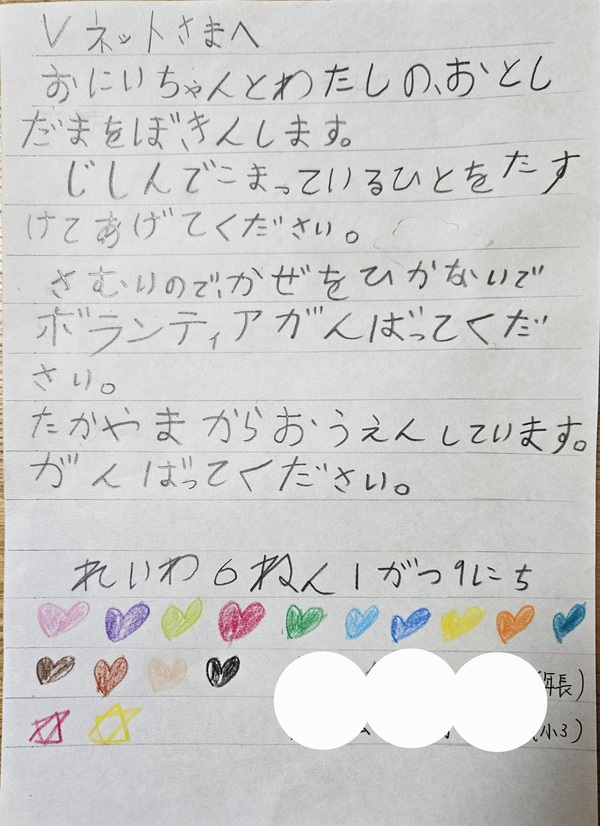 Vネットさまへ
おにいちゃんとわたしの、おとし
だまをぼきんします。
じしんでこまっているひとをたす
けてあげてください。
さむいので、かぜをひかないで
ボランティアがんばってくだ
さい。
たかやまからおうえんしています。
がんばってください。
れいわ6ねん1がつ9にち
年長)
(小3)